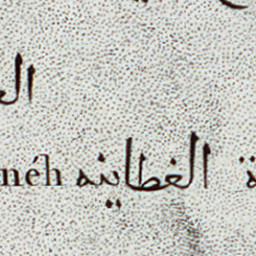 ال
néh الغطاينه ة